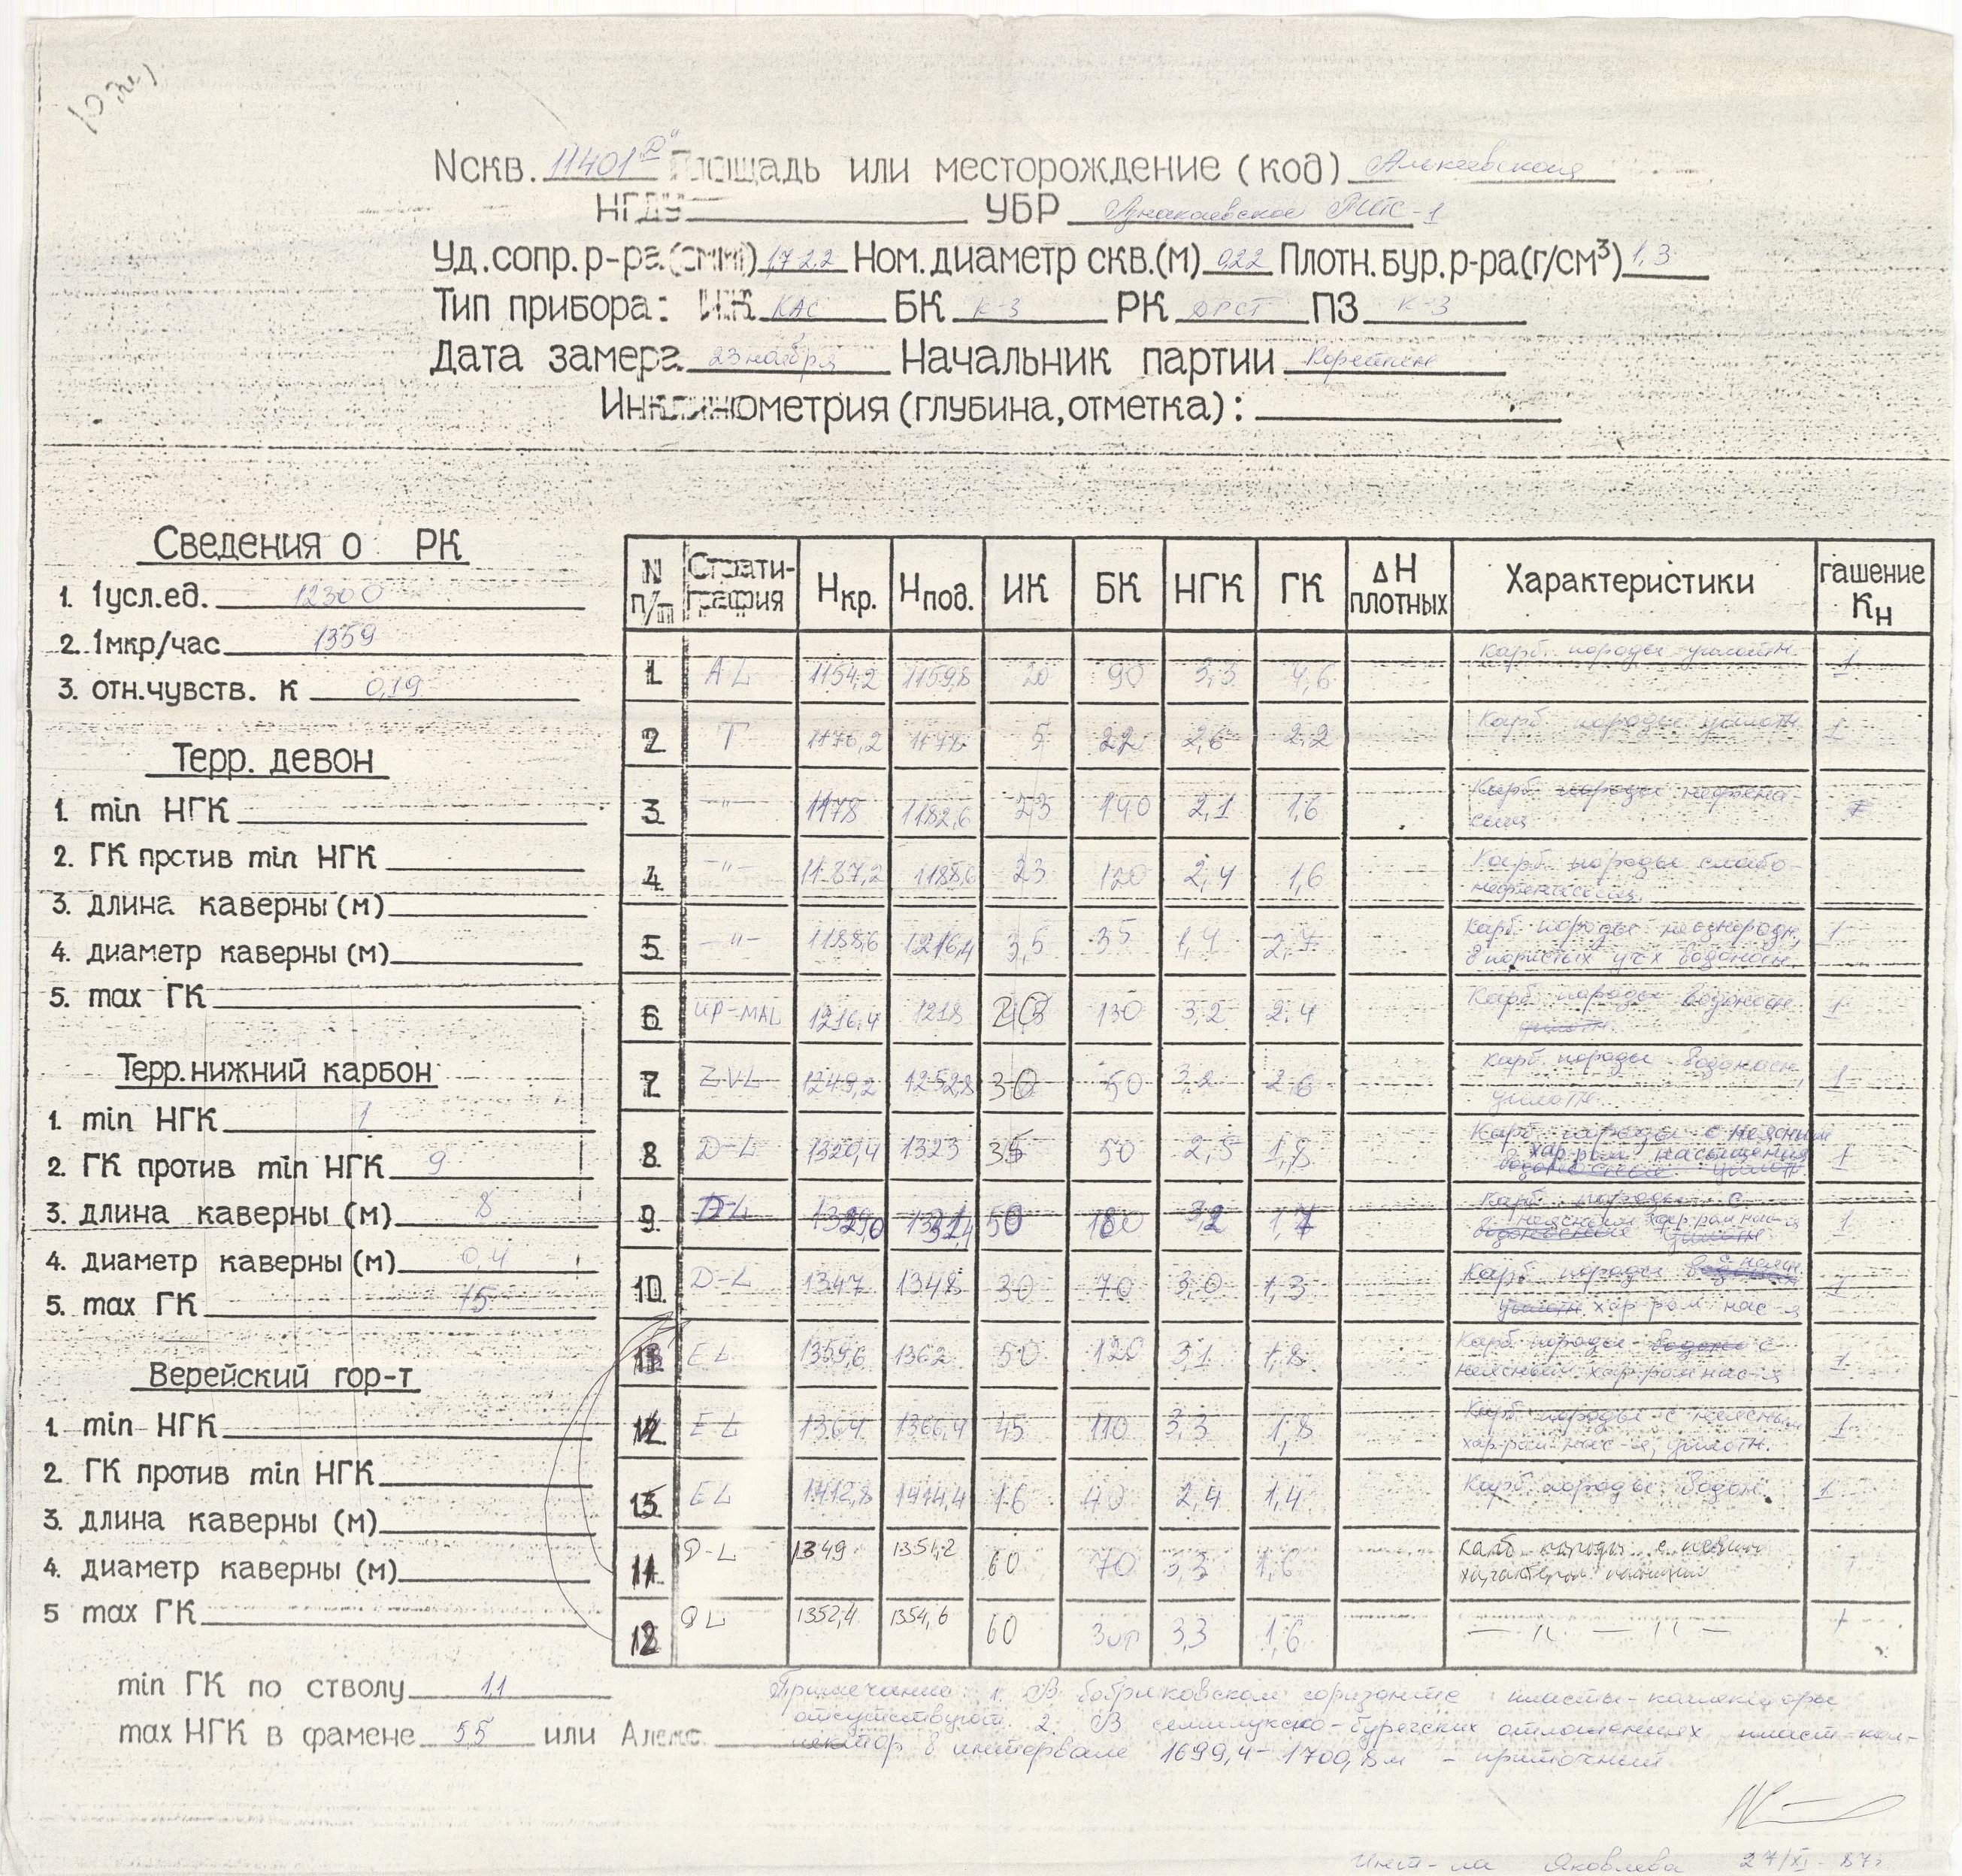 Nскв. 11401 "D" Площадь или месторождение (код) Алькеевская
НГДУ УБР Азнакаевское -1
Уд.сопр.р-ра(смм) 1,7 2,2 Ном.диаметр скв.(м) 0,22 Плотн.бур.р-ра(г/см³) 1,3
Тип прибора: ИК КАС БК К-3 РК ДРСТ ПЗ К-3
Дата замера 23 ноября Начальник партии
Инклинометрия (глубина, отметка):
Сведения о РК
1. 1усл.ед. 12300
2. 1мкр/час 1359
3. отн.чувств. к 0,19
Терр. девон
1. min НГК
2. ГК против min НГК
3. длина каверны (м)
4. диаметр каверны (м)
5. max ГК
Терр. нижний карбон
1. min НГК 1
2. ГК против min НГК 9
3. длина каверны (м) 8
4. диаметр каверны (м) 0,4
5. max ГК 15
Верейский гор-т
1. min НГК
2. ГК против min НГК
3. длина каверны (м)
4. диаметр каверны (м)
5 max ГК
min ГК по стволу 1,1
max НГК в фамене 5,5 или Алекс.
N п/п Страти-графия Нкр. Нпод. ИК БК НГК ГК ΔН плотных Характеристики гашение Кн
1 AL 1154,2 1159,8 20 90 3,3 4,6 Карб. породы уплотн. 1
2 T 1176,2 1178 5 22 2,6 2,2 Карб. породы уплотн. 1
3 -"- 1178 1182,6 23 140 2,1 1,6 Карб. породы нефтена-
сыщ.
4 -"- 1187,2 1188,6 23 120 2,4 1,6 Карб. породы слабо-
нефтенасыщ.
5 -"- 1188,6 1216,4 3,5 35 1,4 2,7 Карб. породы неоднородн., 1
в пористых уч-х водоносн.
6 UP-MAL 1216,4 1218 130 3,2 2,4 Карб. породы водоносн. 1
уплотн.
7 ZVL 1249,2 1252,8 30 50 3,2 2,6 Карб. породы водоносн., 1
уплотн.
8 D-L 1320,4 1323 35 50 2,5 1,8 Карб. породы с неясным 1
хар-ром насыщения
9 D-L 1329,0 1331,4 50 180 3,2 1,7 Карб. породы с 1
неясным хар-ром нас-я
10 D-L 1347 1348 30 70 3,0 1,3 Карб. породы с неясн. 1
хар-ром нас-я
13 EL 1359,6 1362 50 120 3,1 1,8 Карб. породы с 1
неясным хар-ром нас-я
14 EL 1364 1366,4 45 110 3,3 1,8 Карб. породы с неясным 1
хар-ром нас-я, уплотн.
15 EL 1412,8 1414,4 16 40 2,4 1,4 Карб. породы водон. 1
11 D-L 1349 1351,2 60 70 3,3 1,6 карб породы с неясн
характером насыщения
12 DL 1352,4 1354,6 60 3,3 1,6 — " — " —
Примечание: 1. В бобриковском горизонте пласты-коллекторы
отсутствуют. 2. В семилукско-бурегских отложениях пласт-кол-
лектор в интервале 1699,4-1700,8м - приточный
Инт-ла Яковлева 27/XI-87г